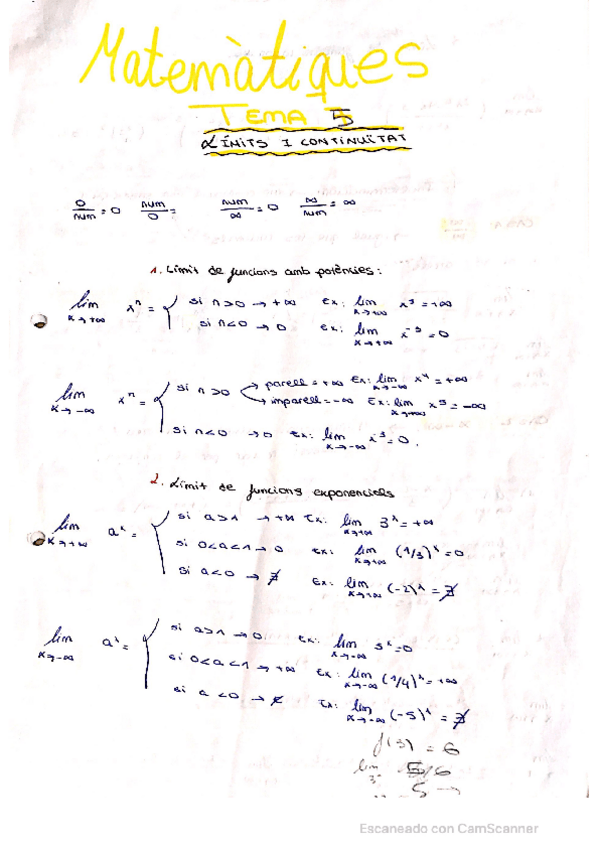 Matemàtiques
TEMA 5
LÍMITS I CONTINUÏTAT
0/num = 0   num/0 =   num/∞ = 0   ∞/num = ∞
1. Límit de funcions amb potències:
lim x→+∞ xⁿ = { si n>0 → +∞   Ex: lim x→+∞ x³ = +∞
si n<0 → 0   ex: lim x→+∞ x⁻³ = 0
lim x→-∞ xⁿ = { si n>0 → parell = +∞   Ex: lim x→-∞ x⁴ = +∞
→ imparell = -∞   Ex: lim x³ = -∞
si n<0 → 0   Ex: lim x→-∞ x⁻³ = 0.
2. Límit de funcions exponencials
lim x→+∞ aˣ = { si a>1 → +∞   Ex: lim x→+∞ 3ˣ = +∞
si 0<a<1 → 0   Ex: lim x→+∞ (1/3)ˣ = 0
si a<0 → ∄   Ex: lim x→+∞ (-2)ˣ = ∄
lim x→-∞ aˣ = { si a>1 → 0   Ex: lim x→-∞ 3ˣ = 0
si 0<a<1 → +∞   Ex: lim x→-∞ (1/4)ˣ = +∞
si a<0 →   Ex: lim x→-∞ (-5)ˣ = ∄
f(3) = 6
lim 5/6
3⁻
5 →
Escaneado con CamScanner